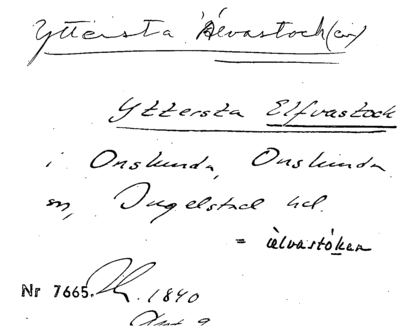 Yttersta Älvastock(en)
Yttersta Elfvastock
i Onslunda, Onslunda
sn, Ingelstad hd.
= älvastóken
Nr 7665. 1840